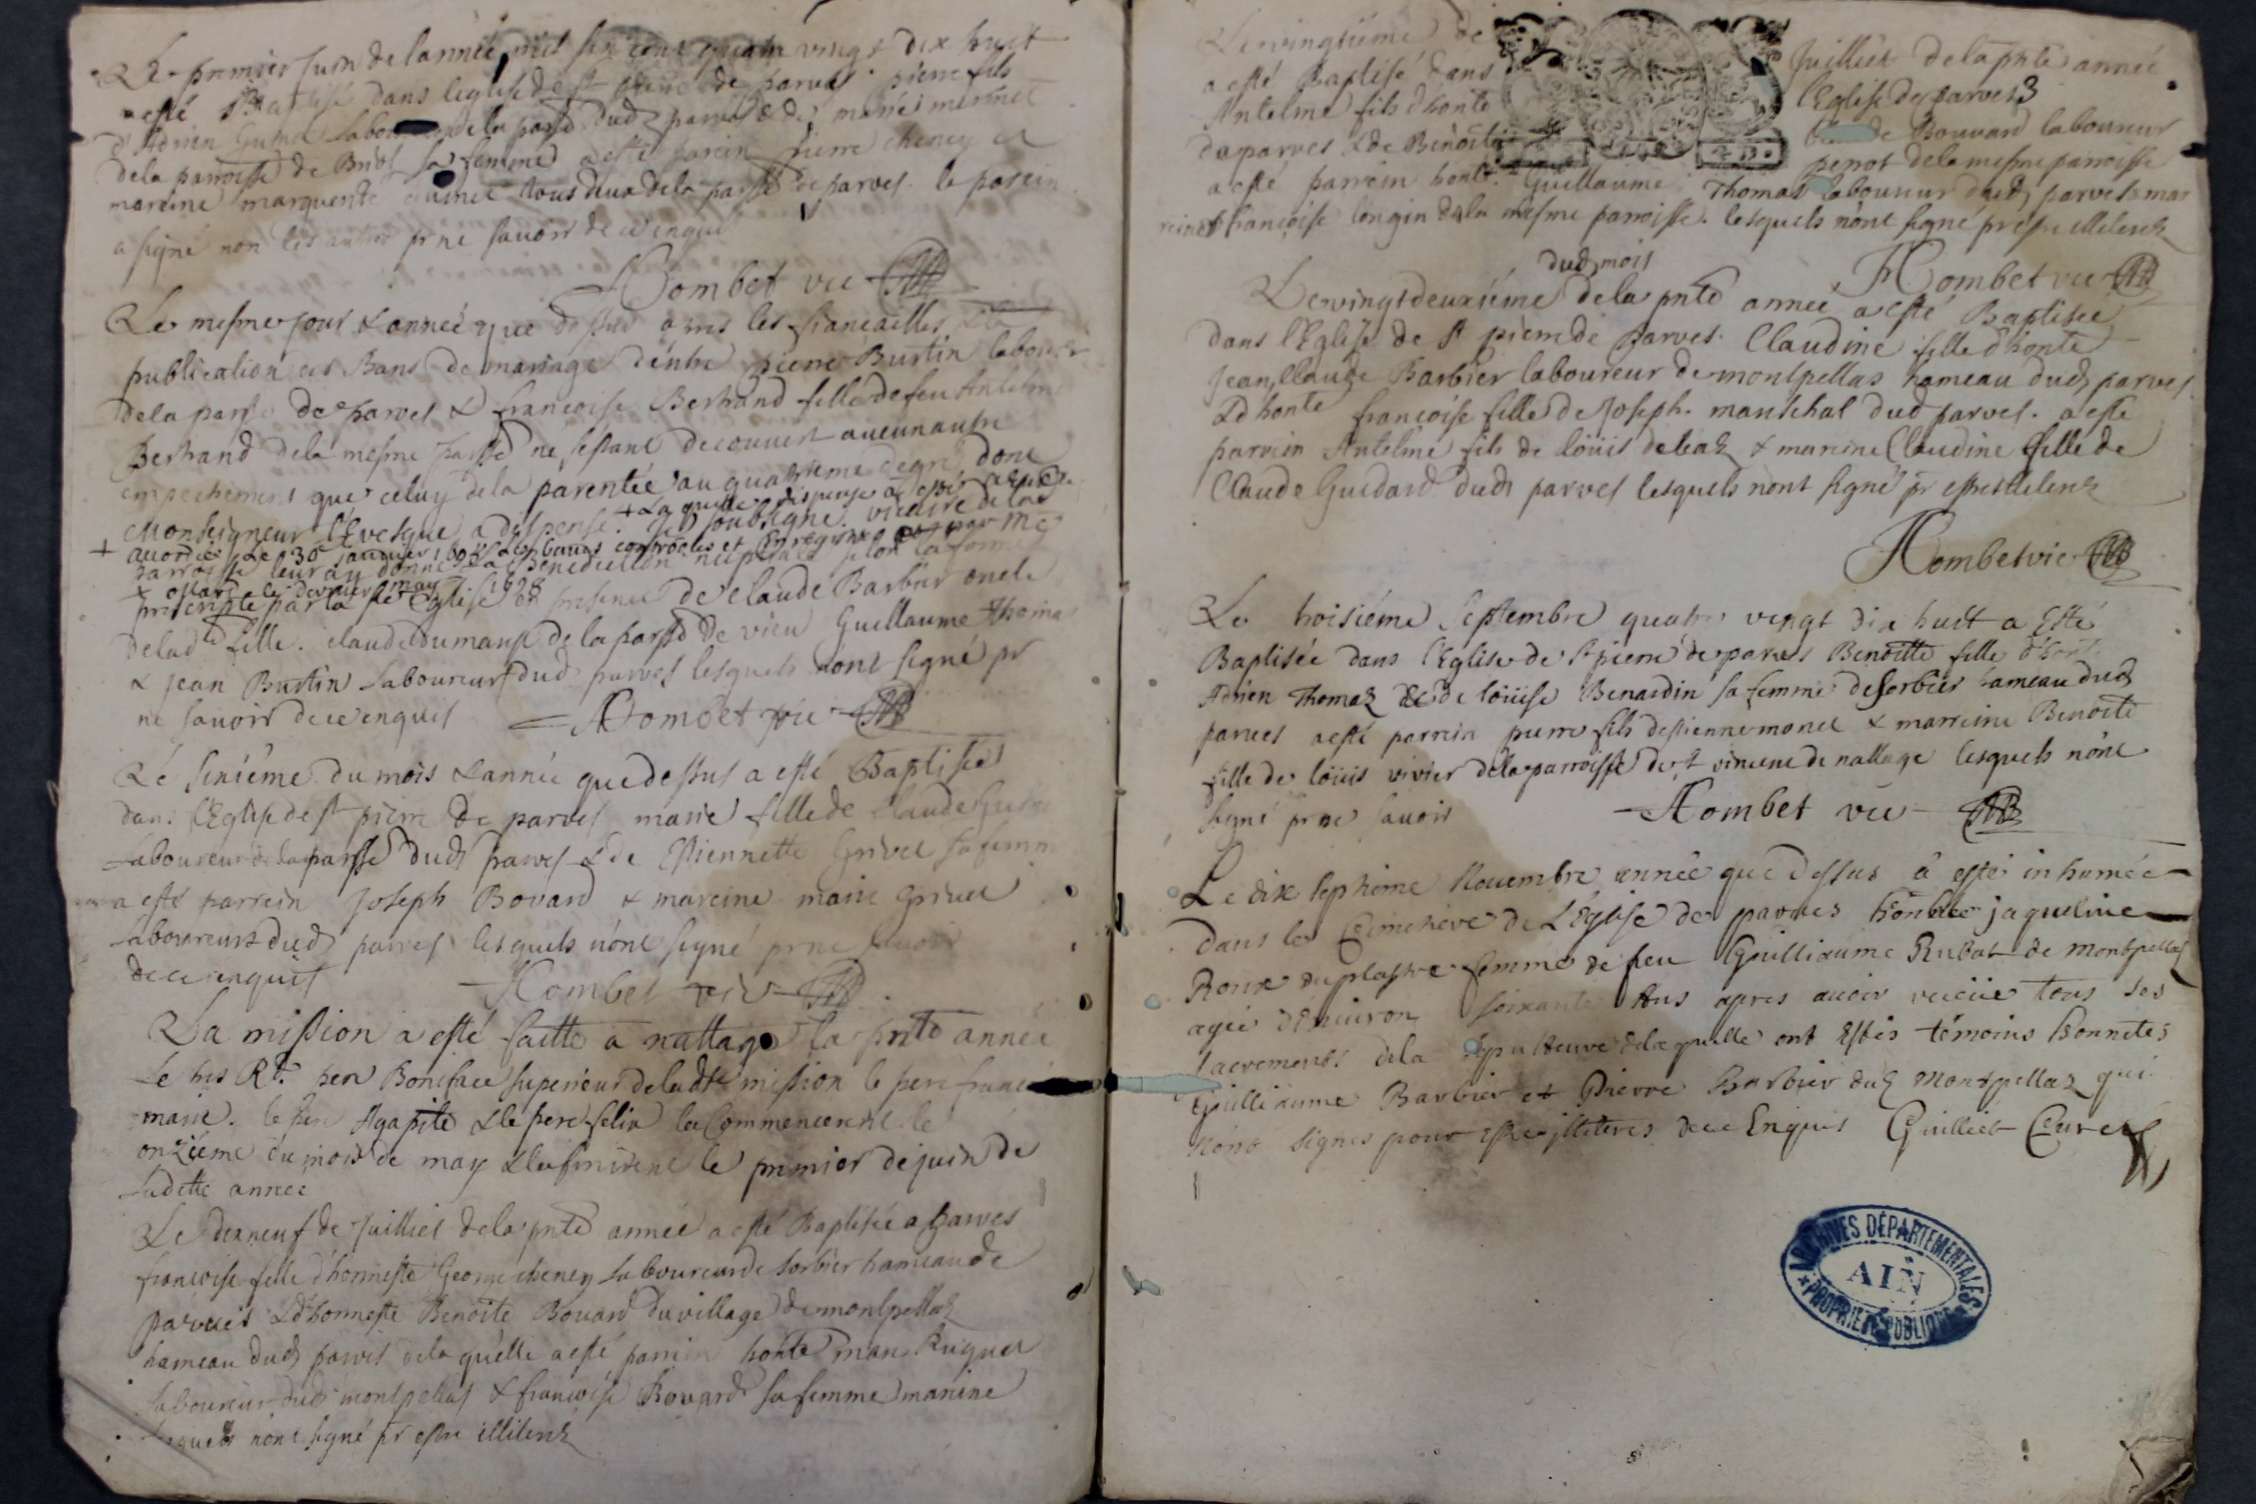 Le premier Juin de lannée mil six cent quatre vingt dix huict
a esté Baptisé dans leglise de st pierre de parves pierre fils
d'Adrien de la parsse dud parves & de marie
de la parroisse de sa femme a esté parrein pierre cheney &
mareine marguerite tous deux de la parsse de parves. le parein
a signé non les autres pr ne savoir de ce enquis
Hombet vic
Le mesme jour & année que dessus apres les fiancailles & la
publication des Bans de mariage dentre pierre Burtin laboureur
de la parsse de parves & francoise Bertrand fille de feu Antelme
Bertrand de la mesme parsse ne sestant decouvert aucun autre
empechement que celuy de la parentée au quatrieme degré dont
Monseigneur l'Evesque a dispensé. + La quelle dispense
Je soubsigné vicaire de la
+ accordée le 30e janvier les bans controoles et Enregistres par me
parroisse leur ay donné la benediction nuptiale selon la forme
le dernier may 1698
prescripte par la ste Eglise en presence de claude Barbier oncle
de lad fille. claude Dumans de la parsse de vieu Guillaume Thoma
& jean Burtin Laboureurs dud parves lesquels n'ont signé pr
ne savoir de ce enquis Hombet vic
Le sixiéme du mois & année que dessus a esté Baptisée
dans l'Eglise de st pierre de parves marie fille de Claude
Laboureur de la parsse dud parves & de Estiennette Grivel sa femme
a esté parrein Joseph Bovard & mareine marie Grivel
laboureurs dud parves lesquels n'ont signé pr ne savoir
de ce enquis Hombet vic
La mission a esté faitte a nattage la pnte année
Le tres Rd. pere Boniface superieur de ladte mission le pere francois
marie. le pere Agapite & le pere felix la Commencerent le
onziéme du mois de may & la finirent le premier de juin de
ladette année
Le dixneuf de Juilliet de la pnte année a esté Baptisée a parves
francoise fille d'honneste George cheney laboureur de sorbier hameau de
parves & d'honneste Benoite Bovard du village de montpellas
hameau dud parves de la quelle a esté parrein honte Ruguet
laboureur dud montpellas & francoise Bovard sa femme mareine
lesquels n'ont signé pr estre illiterez
Le vingtiéme de Juilliet de la pnte année
a esté Baptisé dans l'Eglise de parves
Antelme fils d'honte de Bouvard laboureur
de parves & de Benoite perrot de la mesme parroisse
a esté parrein honte. Guillaume Thomas laboureur dud parves & mar
reine francoise longin de la mesme parroisse. lesquels n'ont signé pr estre illiterez
Hombet vic
dud mois
Le vingt deuxiéme de la pnte année a esté Baptisée
dans l'Eglise de st pierre de parves. Claudine fille d'honte
Jean Claude Barbier laboureur de montpellas hameau dud parves
& d'honte francoise fille de Joseph. marechal dud parves. a esté
parrein Antelme fils de loüis & mareine Claudine fille de
Claude Guidard dud parves lesquels n'ont signé pr estre illiterez
Hombet vic
Le troisiéme Septembre quatre vingt dix huit a Esté
Baptisée dans l'Eglise de st pierre de parves Benoitte fille d'hont
Adrien Thomaz & de loüise Benardin sa femme de sorbier hameau dud
parves a esté parrein pierre fils destienne monet & marreine Benoite
fille de loüis vivier de la parroisse de st vincent de nattage lesquels n'ont
signé pr ne savoir Hombet vic
Le dix septieme Novembre année que dessus a esté inhumée
dans le Cimetiere de L'Eglise de parves honnete jaqueline
Roux du plastre femme de feu Guilliaume Rubat de Montpellas
agée d'Environ soixante Ans apres avoir receüe tous ses
sacrements de la sepulteure de laquelle ont Estés témoins honnetes
Guilliaume Barbier et Pierre Barbier dud Montpellaz qui
n'ont signés pour estre illiteres de ce Enquis Guilliet Curé
ARCHIVES DÉPARTEMENTALES
AIN
PROPRIÉTÉ PUBLIQUE